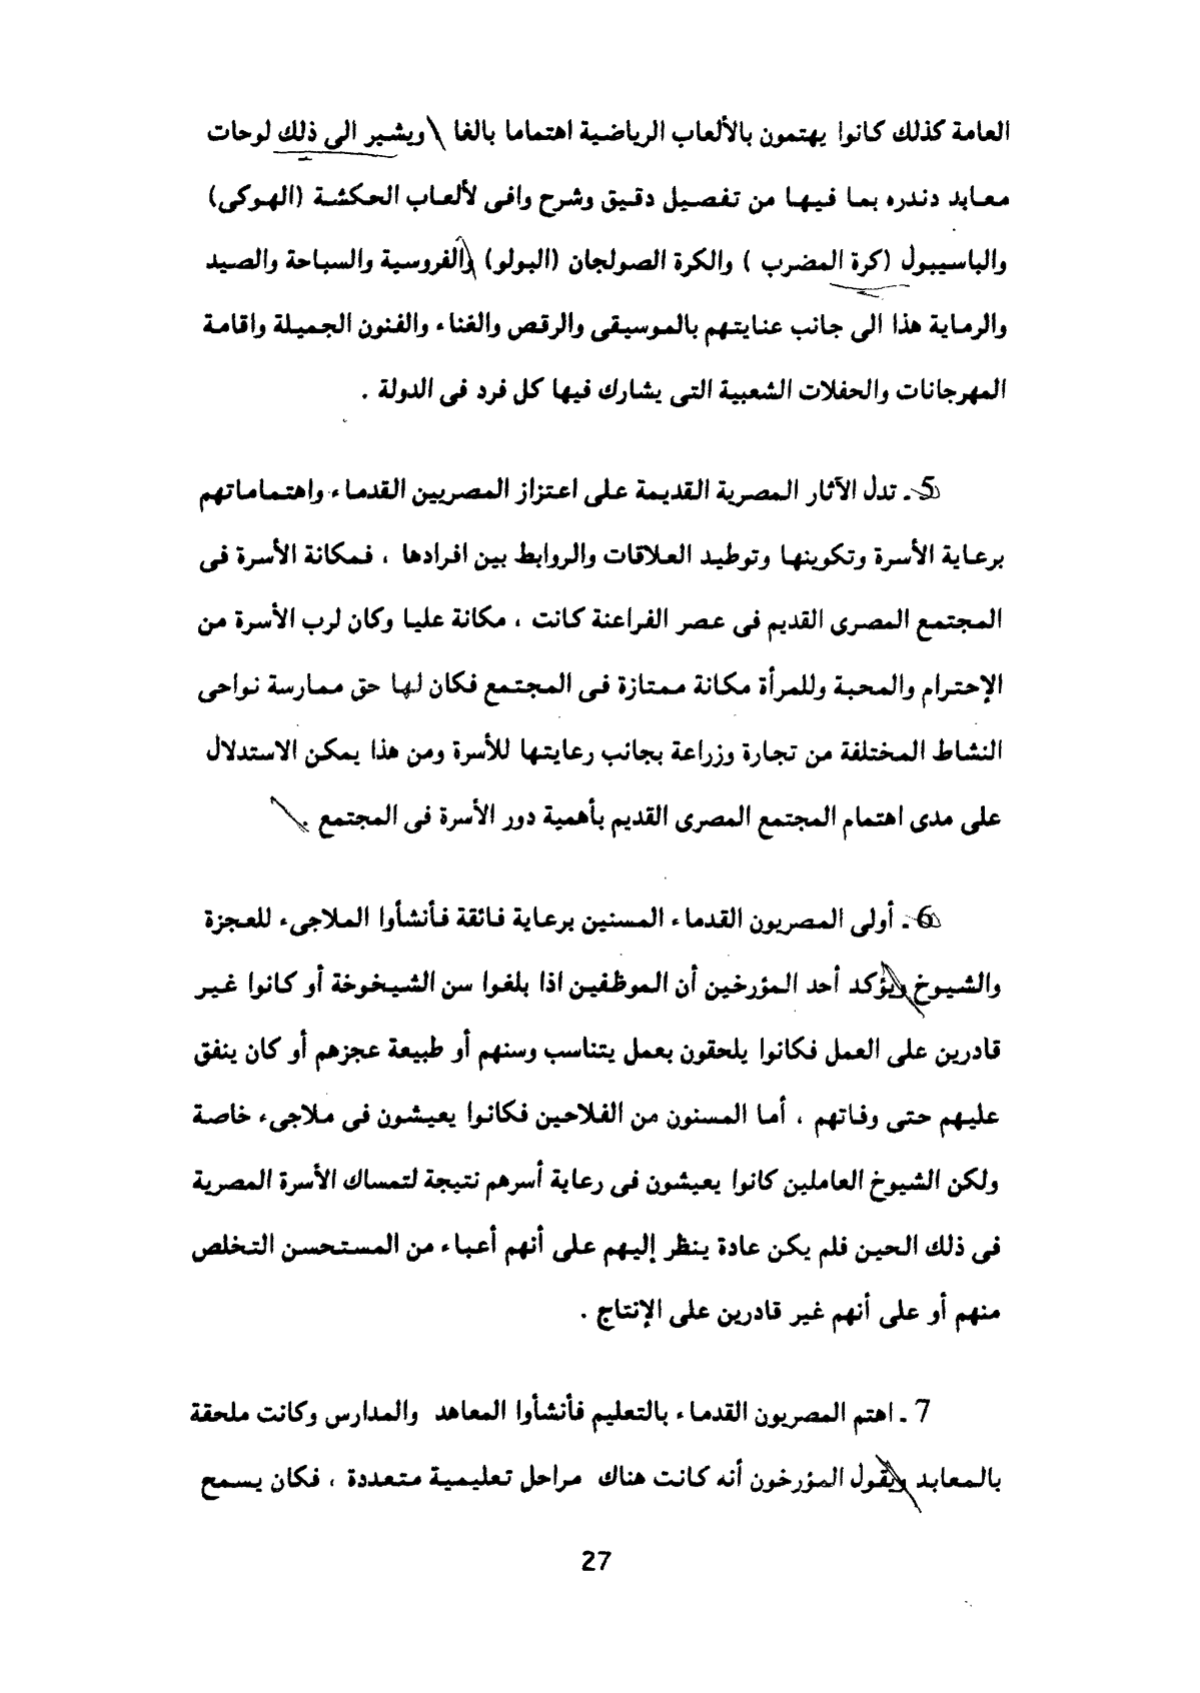 العامة كذلك كانوا يهتمون بالألعاب الرياضية اهتماما بالغا \ ويشير الى ذلك لوحات
معابد دندره بما فيها من تفصيل دقيق وشرح وافى لألعاب الحكشة (الهوكى)
والباسيبول (كرة المضرب ) والكرة الصولجان (البولو) والفروسية والسباحة والصيد
والرماية هذا الى جانب عنايتهم بالموسيقى والرقص والغناء والفنون الجميلة واقامة
المهرجانات والحفلات الشعبية التى يشارك فيها كل فرد فى الدولة .
5 ـ تدل الآثار المصرية القديمة على اعتزاز المصريين القدماء واهتماماتهم
برعاية الأسرة وتكوينها وتوطيد العلاقات والروابط بين افرادها ، فمكانة الأسرة فى
المجتمع المصرى القديم فى عصر الفراعنة كانت ، مكانة عليا وكان لرب الأسرة من
الإحترام والمحبة وللمرأة مكانة ممتازة فى المجتمع فكان لها حق ممارسة نواحى
النشاط المختلفة من تجارة وزراعة بجانب رعايتها للأسرة ومن هذا يمكن الاستدلال
على مدى اهتمام المجتمع المصرى القديم بأهمية دور الأسرة فى المجتمع .
6 ـ أولى المصريون القدماء المسنين برعاية فائقة فأنشأوا الملاجىء للعجزة
والشيوخ ويؤكد أحد المؤرخين أن الموظفين اذا بلغوا سن الشيخوخة أو كانوا غير
قادرين على العمل فكانوا يلحقون بعمل يتناسب وسنهم أو طبيعة عجزهم أو كان ينفق
عليهم حتى وفاتهم ، أما المسنون من الفلاحين فكانوا يعيشون فى ملاجىء خاصة
ولكن الشيوخ العاملين كانوا يعيشون فى رعاية أسرهم نتيجة لتمساك الأسرة المصرية
فى ذلك الحين فلم يكن عادة ينظر إليهم على أنهم أعباء من المستحسن التخلص
منهم أو على أنهم غير قادرين على الإنتاج .
7 ـ اهتم المصريون القدماء بالتعليم فأنشأوا المعاهد والمدارس وكانت ملحقة
بالمعابد ويقول المؤرخون أنه كانت هناك مراحل تعليمية متعددة ، فكان يسمح
27